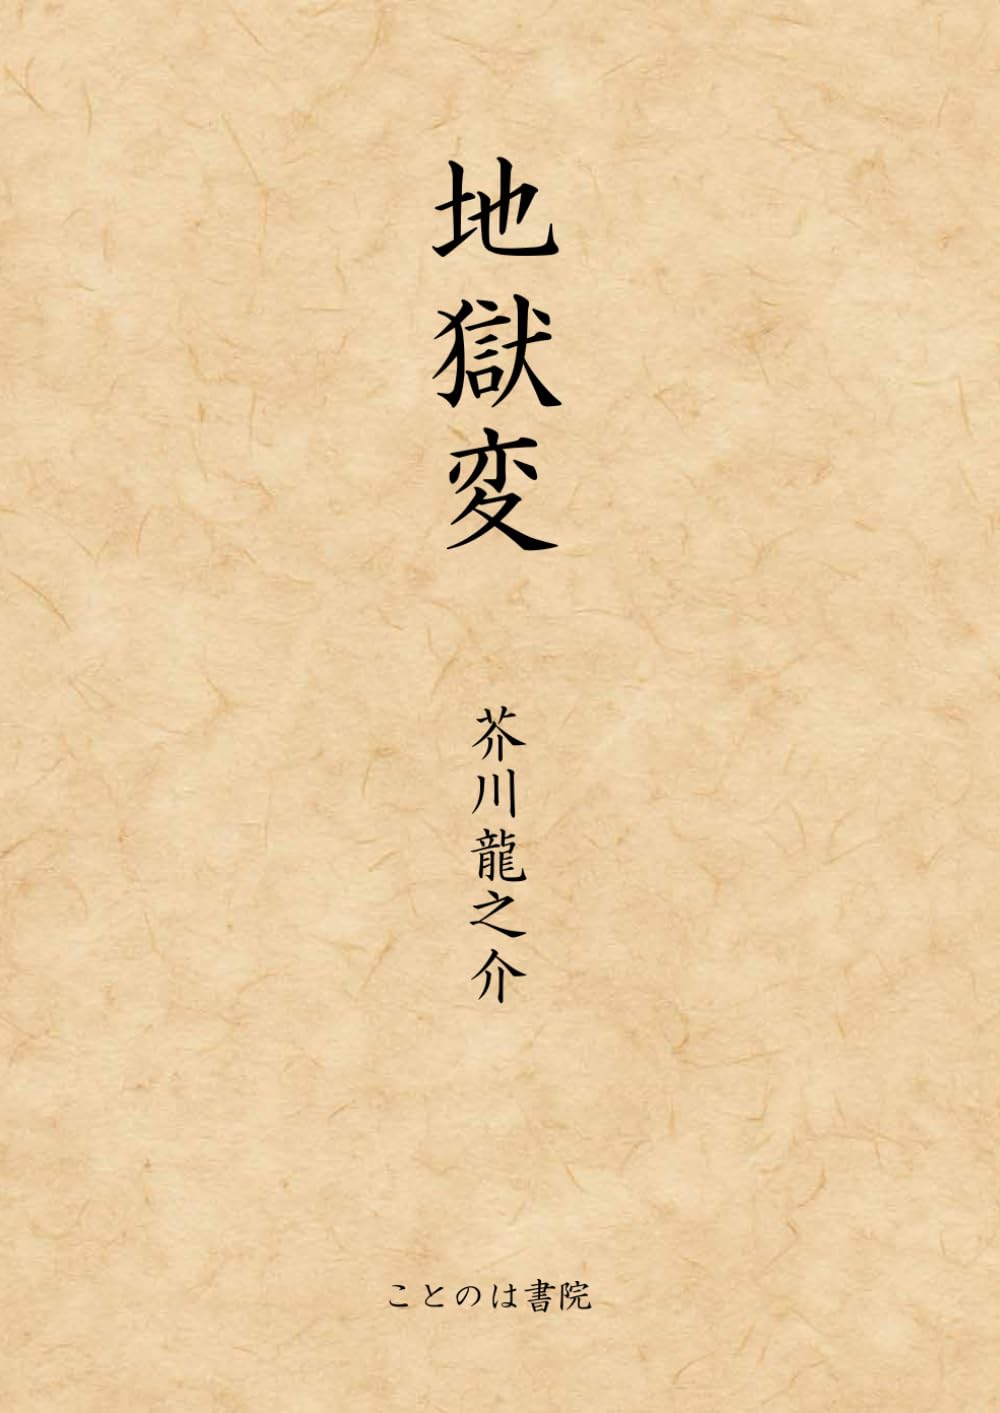 地獄変
芥川龍之介
ことのは書院